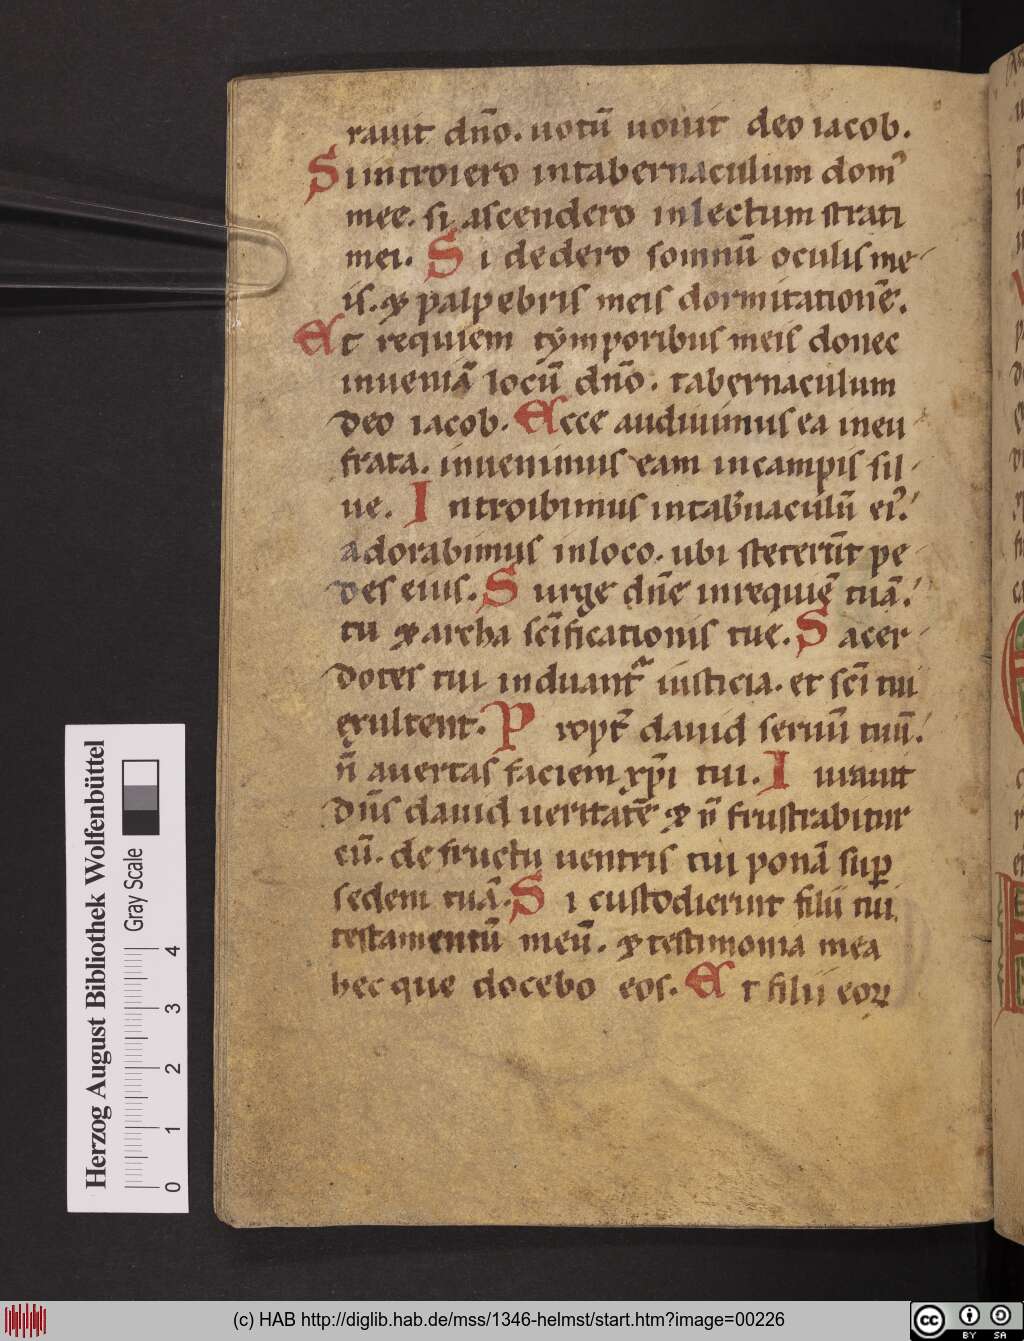 rauit dn̄o. uotū uouit deo iacob.
Si introiero in tabernaculum dom᾽
mee. si ascendero in lectum strati
mei. Si dedero somnū oculis me
is. & palpebris meis dormitationē.
Et requiem tẏmporibus meis donec
inueniā locū dn̄o. tabernaculum
deo iacob. Ecce audiuimus ea in eu
frata. inuenimus eam in campis sil
ue. Introibimus in tab̄naculū ei᾽.
adorabimus in loco. ubi steterūt pe
des eius. Surge dn̄e in requiē tuā.
tu & archa scīficationis tue. Sacer
dotes tui induant᷑ iusticia. et scī tui
exultent. Propt̄ dauid seruū tuū.
n̄ auertas faciem xp̄i tui. Iurauit
dn̄s dauid ueritatē & n̄ frustrabitur
eū. de fructu uentris tui ponā sup̄
sedem tuā. Si custodierint filii tui
testamentū meū. & testimonia mea
hec que docebo eos. Et filii eoꝝ
Herzog August Bibliothek Wolfenbüttel
Gray Scale
0 1 2 3 4
(c) HAB http://diglib.hab.de/mss/1346-helmst/start.htm?image=00226
cc BY SA